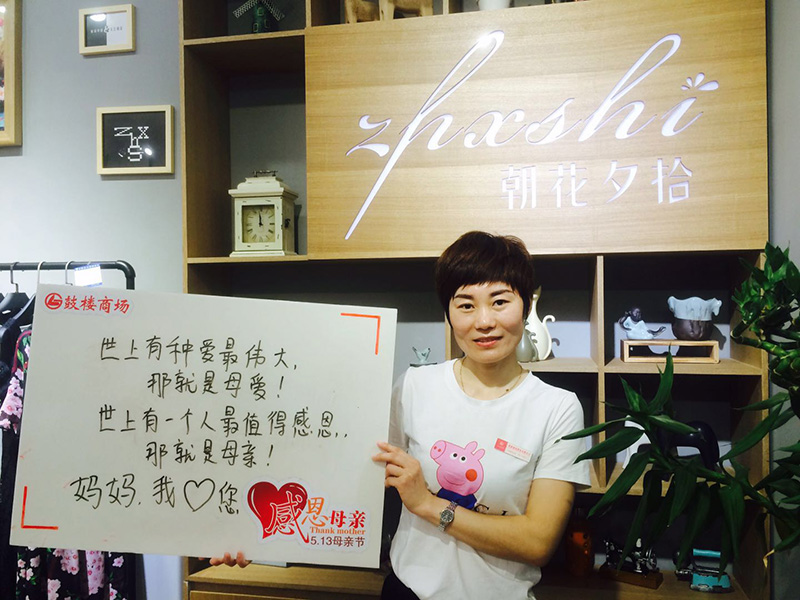 zhxshi
朝花夕拾
鼓楼商场
世上有种爱最伟大,
那就是母爱!
世上有一个人最值得感恩,.
那就是母亲!
妈妈.我♡您
感恩母亲
Thank mother
5.13母亲节